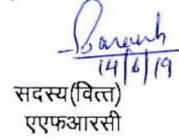 14/6/19
सदस्य(वित्त)
एएफआरसी